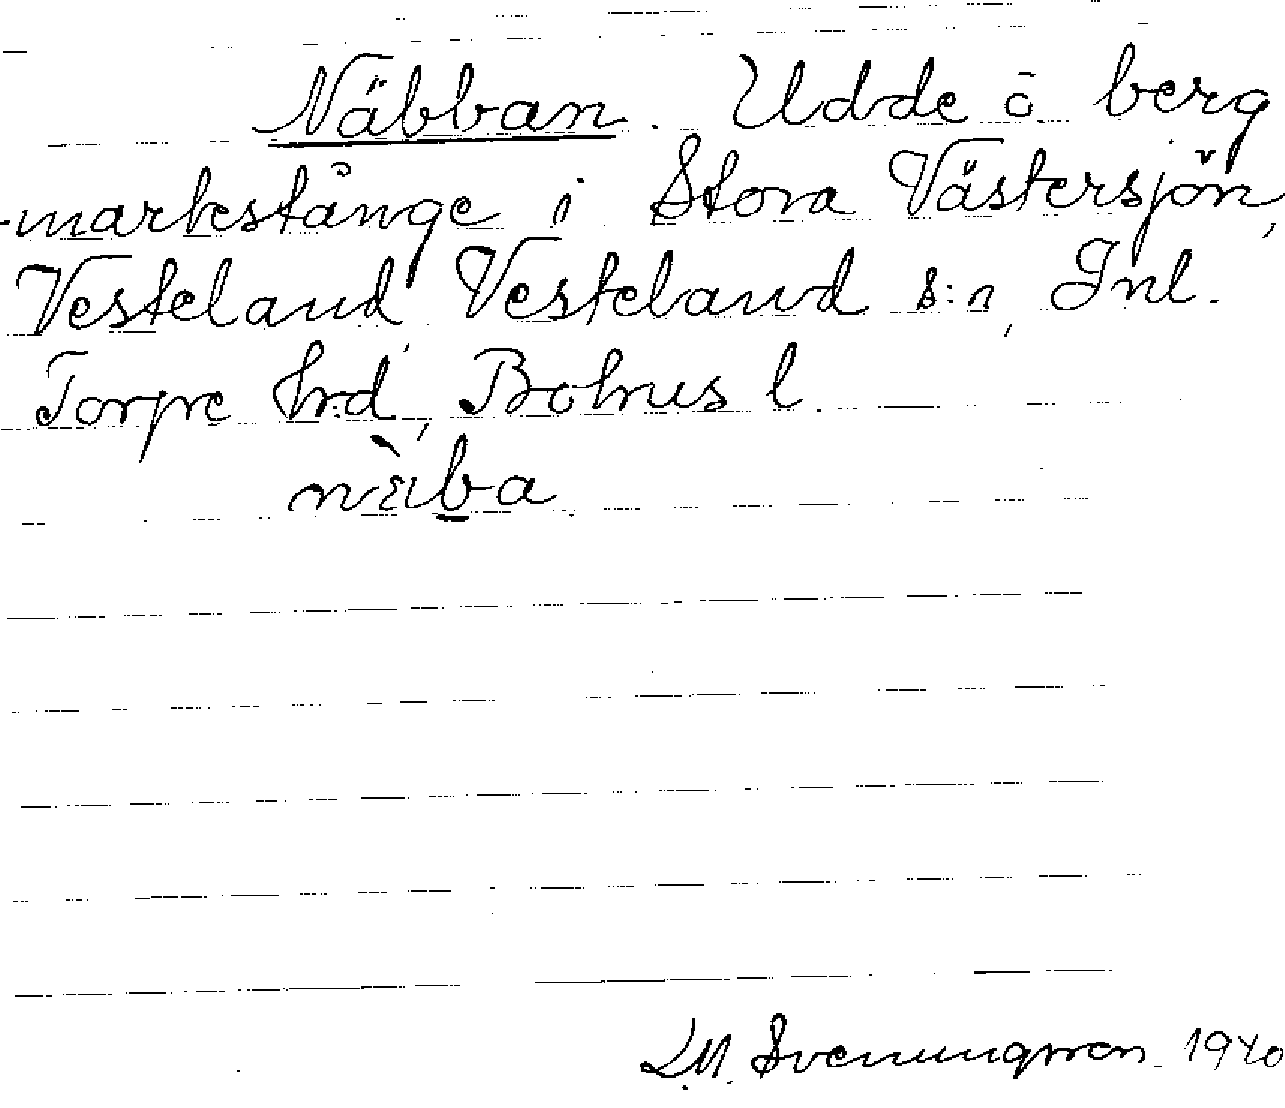 Näbban. Udde o. berg
-markestånge i Stora Västersjön,
Vesteland, Vesteland s:n, Inl.
Torpe hrd, Bohus l.
nä̀ba
L.M. Svenungsson 1940